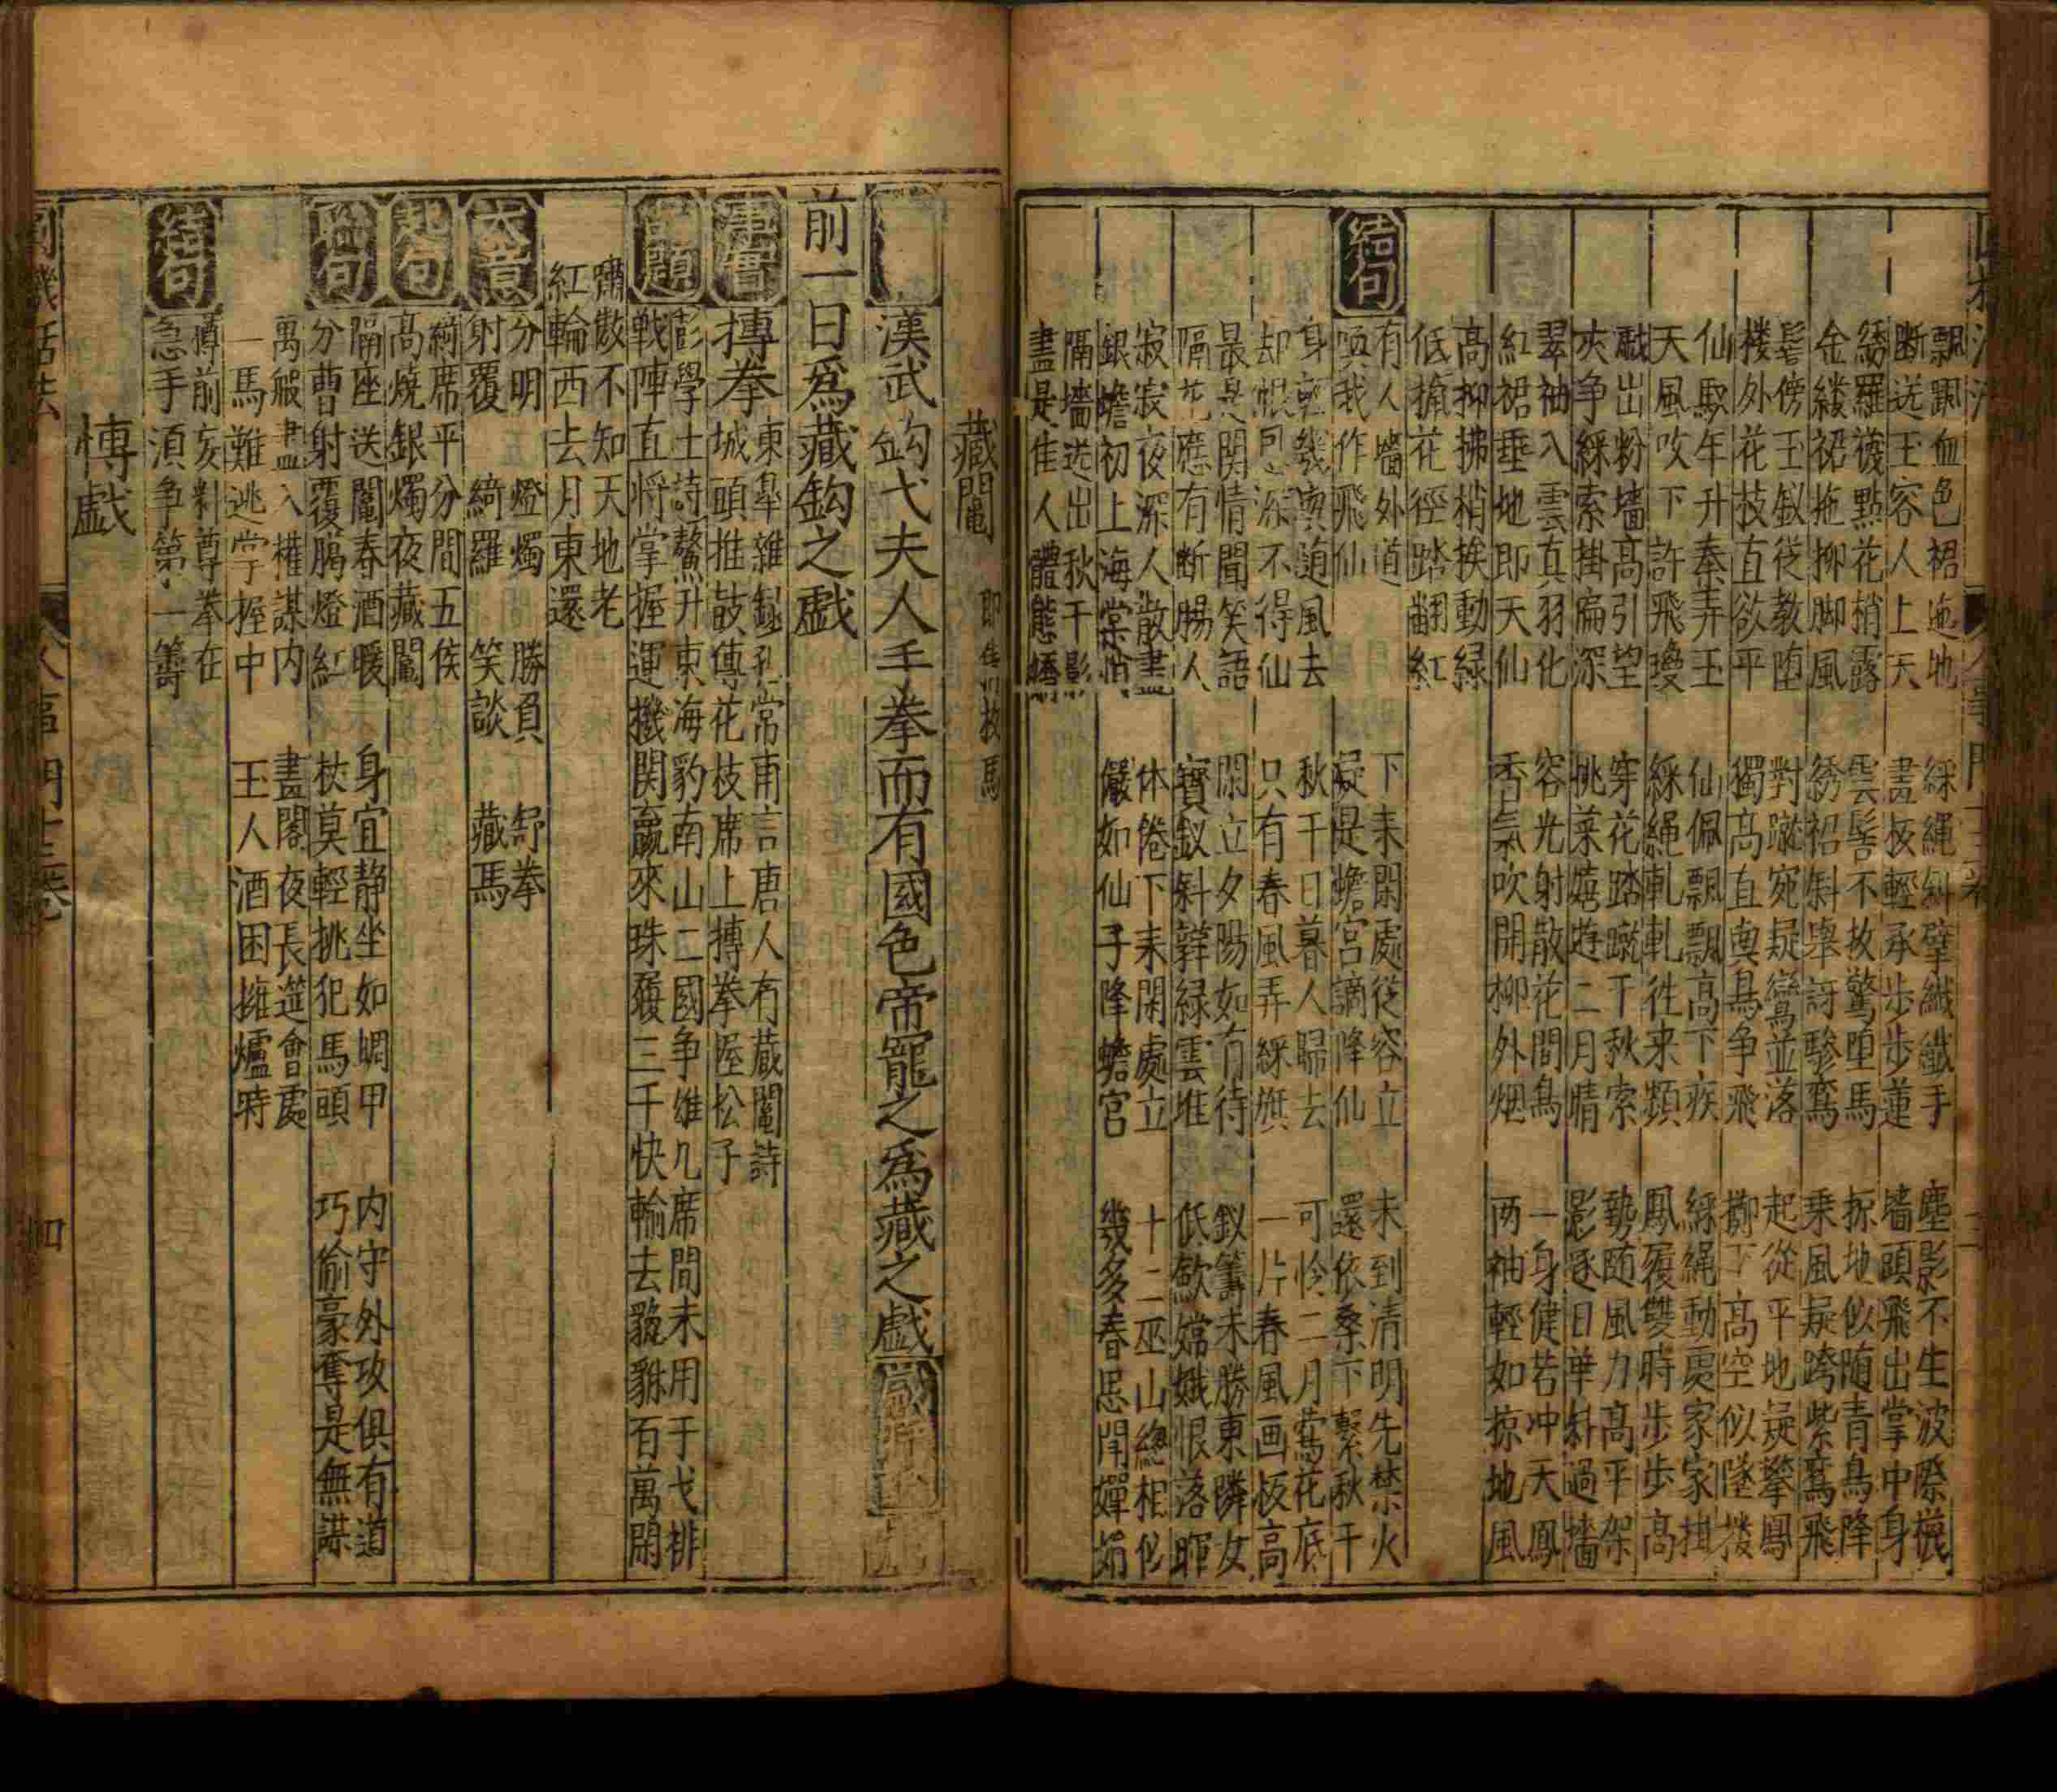 飄颺血色裙迤地　綵繩斜擘纖纖手　塵影不生波際襪
断送玉容人上天　畫板輕承步步蓮　墻頭飛出掌中身
綉羅襪點花梢露　雲髻不放驚堕馬　掠地似随青鳥降
金縷裙拖柳脚風　綉袑斜舉訝驂鸞　乘風疑跨紫鸞飛
髻傍玉釵從教堕　對蹴宛疑鸞並落　起從平地疑攀鳳
楼外花技直欲平　獨高直與鳥争飛　擲下高空似墜楼
仙馭年年升奉弄玉　仙佩飄飄高下疾　綵繩動處家家掛
天風吹下許飛瓊　綵繩軋軋往来頻　鳳履雙時步步高
戲出粉墻高引望　穿花踏蹴千秋索　勢随風力高平架
夾争綵索掛扁深　挑菜嬉遊二月晴　影逐日華斜過墻
翠袖入雲真羽化　容光射散花間鳥　一身健若冲天鳳
紅裙垂地即天仙　香氣吹開柳外烟　两袖輕如掠地風
高柳拂梢挨動緑
低揷花徑踏翻紅
結句
有人墻外道　下来閑處従容立　未到清明先禁火
喚我作飛仙　疑是蟾宮謫降仙　還依桑下繫秋千
身輕幾與随風去　秋千日暮人歸去　可怜二月鶯花底
却恨恩深不得仙　只有春風弄綵旗　一片春風画板高
最是関情聞笑語　閑立夕陽如有待　釵籌未勝東隣女
隔花應有断腸人　寳釵斜軃緑雲堆　低歛嫦娥恨落暉
寂寂夜深人散盡　休倦下来閑處立　十二巫山總相似
銀蟾初上海棠梢　儼如仙子降蟾宮　幾多春思閗嬋娟
隔墻送出秋千影
盡是佳人體態嬌
藏鬮
漢武鈎弋夫人手拳而有國色帝寵之為藏之戲
前一日為藏鈎之戲
事實
摶拳　東皋雜録孔常甫言唐人有蔵鬮詩
城頭推鼓傳花枝席上摶拳握松子
彭學士詩鰲升東海豹南山二國争雄几席間未用于戈排
戦陣直将掌握運機関羸來珠履三千快輸去貔貅百萬閑
嘯散不知天地老
紅輪西去月東還
大意
分明　燈燭　勝負　舒拳
射覆　綺羅　笑談　藏馬
起句
綺席平分間五侯
高燒銀燭夜藏鬮
聯句
隔座送鬮春酒暖　身宜静坐如蜩甲　内守外攻俱有道
分曹射覆臈燈紅　杖莫輕挑犯馬頭　巧偷豪奪是無謀
萬般盡入權謀内　畫閣夜長筵會處
一馬難逃掌握中　玉人酒困擁爐時
結句
樽前亥料尊拳在
急手湏争第一籌
愽戲
人事門十三卷
四